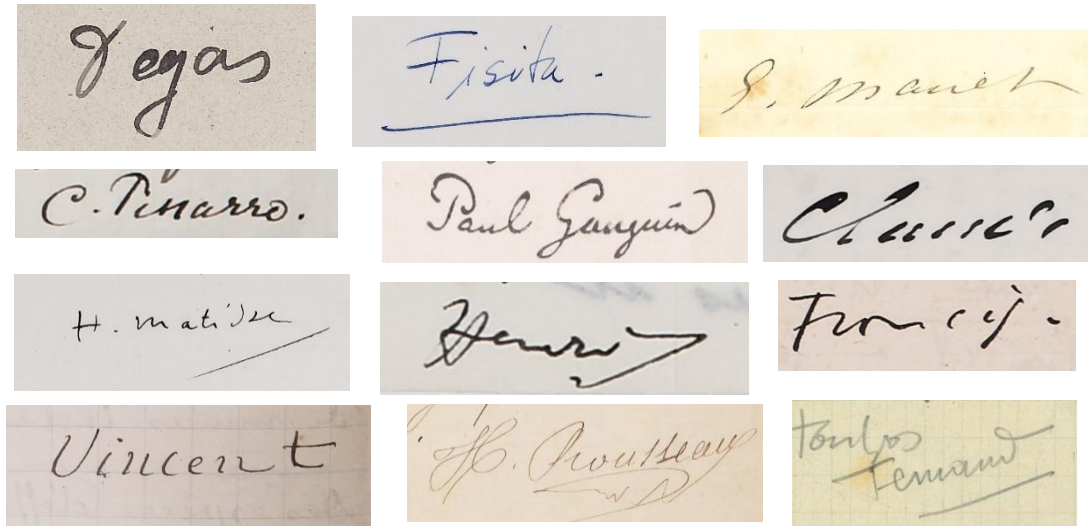 Degas
Fisita.
E. Manet
C. Pissarro.
Paul Gauguin
H. Matisse
Henri
Francis.
Vincent
H. Rousseau
Fernand